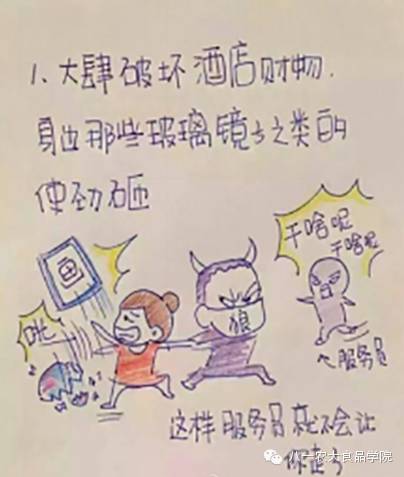 1、大肆破坏酒店财物.
身边那些玻璃镜子之类的
使劲砸
画
咣
狼
干啥呢
干啥呢
服务员
这样服务员就不会让
你走了
八一农大食品学院